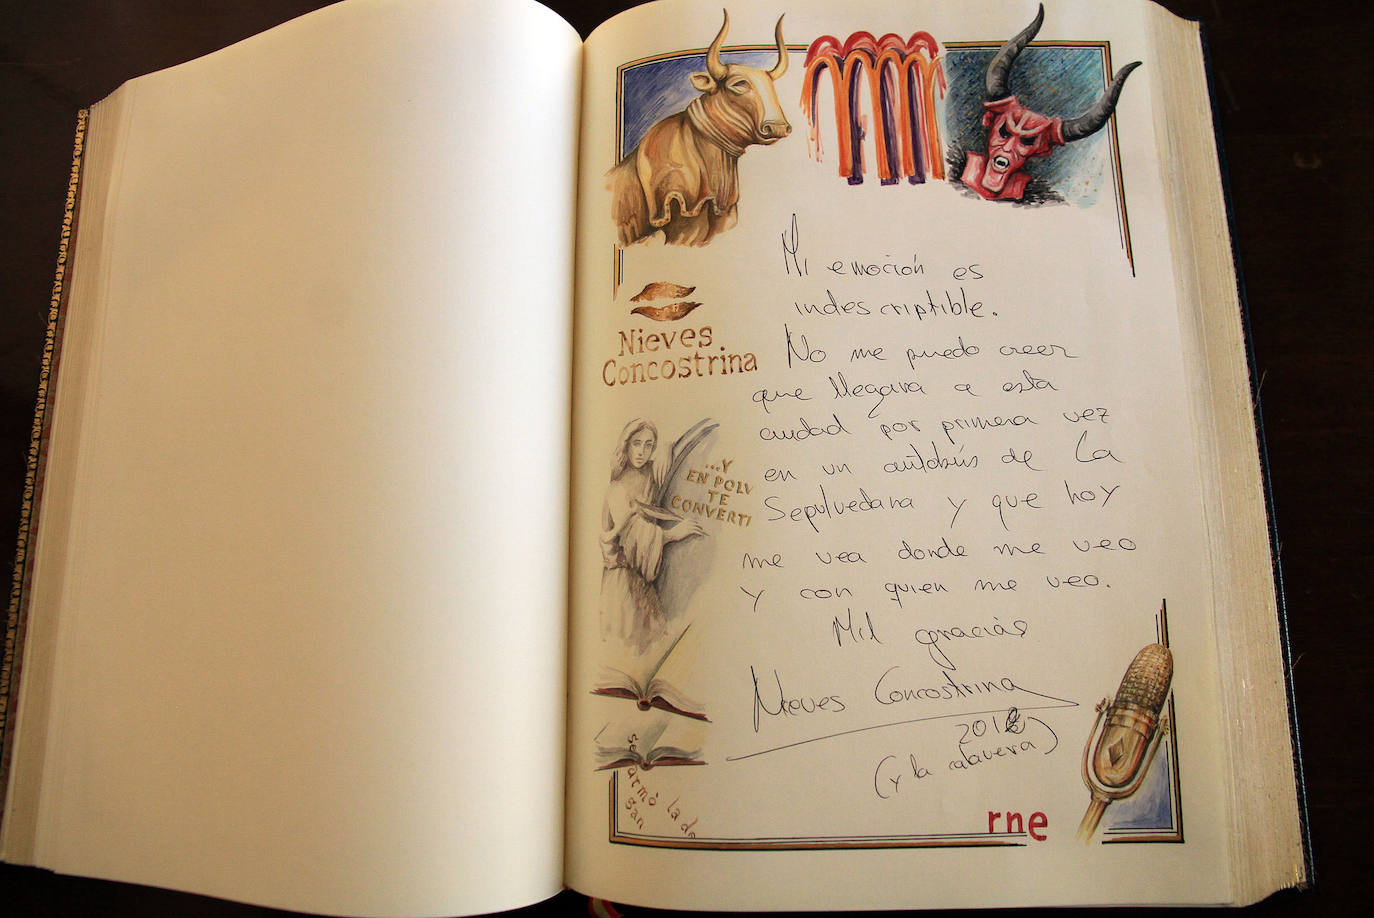 Mi emoción es
indescriptible.
No me puedo creer
que llegara a esta
ciudad por primera vez
en un autobús de La
Sepulvedana y que hoy
me vea donde me veo
y con quien me veo.
Mil gracias
Nieves Concostrina
(y la calavera)
Nieves
Concostrina
...Y
EN POLV
TE
CONVERTI
se armó la de
san
rne